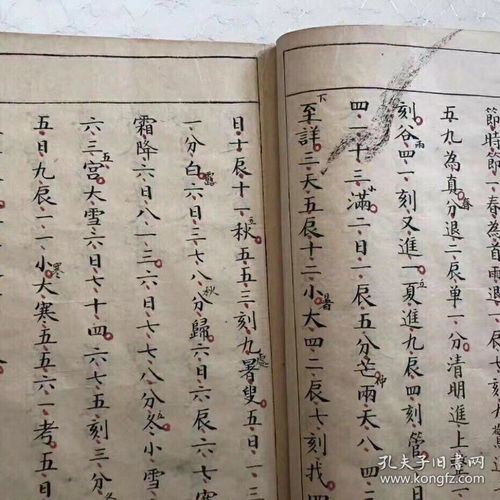 節時節一春為首雨退一辰七刻
五九為真春分退二辰單一分清明進上
刻谷雨四一刻又進一立夏進九辰四刻管
四一二十三小滿二日一辰五分芒種雨天八四二
下至詳三天五辰十二小暑大四二辰七刻找四
日十辰十一立秋五五三刻九處暑叟五日一
一分白露六日三七八分秋歸六日六辰六七寒
霜降六日八一三六日七七八分立冬小雪
六三五宮大雪六日七十四六七五刻三分
五日九辰一一小寒大寒五五六一考五日
孔夫子旧书网
www.kongfz.com